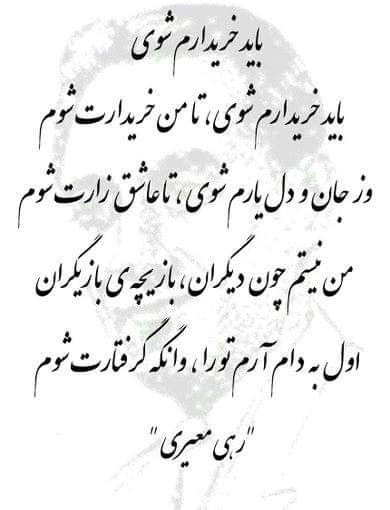 باید خریدارم شوی
باید خریدارم شوی، تا من خریدارت شوم
وز جان و دل یارم شوی، تا عاشق زارت شوم
من نیستم چون دیگران، بازیچه‌ی بازیگران
اول به دام آرم تو را، وانگه گرفتارت شوم
"رهی معیری"